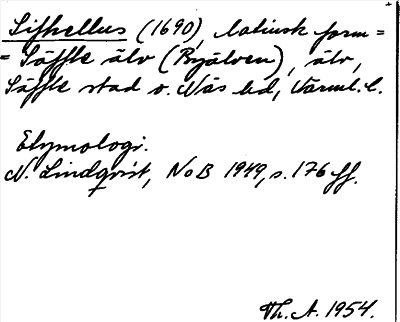 Siffvellus (1690), latinsk form =
= Säffle älv (Byälven), älv,
Säffle stad o. Näs hd, Värml. l.
Etymologi.
N. Lindqvist, NoB 1949, s. 176 ff.
Th. A. 1954.